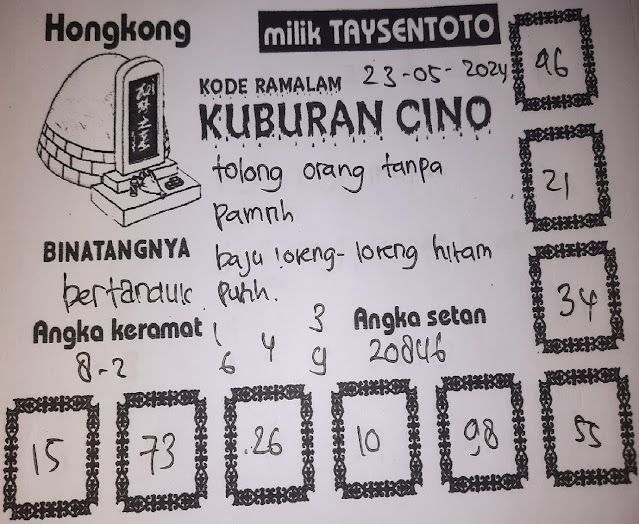 Hongkong
milik TAYSENTOTO
KODE RAMALAM 23-05-2024
KUBURAN CINO
96
tolong orang tanpa
pamrih
21
BINATANGNYA
bertanduk
baju loreng-loreng hitam
putih.
34
Angka keramat
8-2
1 3
4
6 9
Angka setan
20846
15 73 26 10 98 55